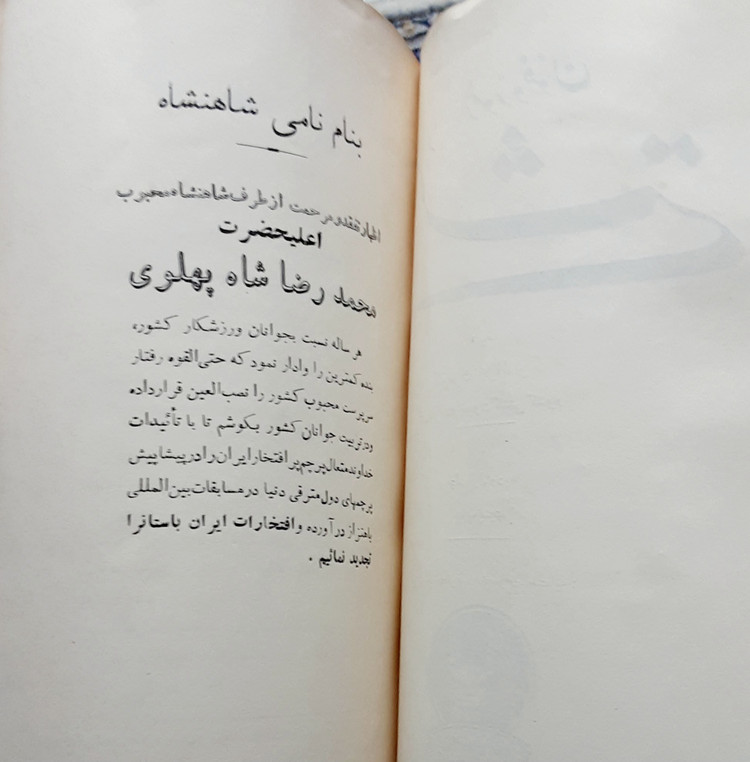 بنام نامی شاهنشاه
اظهار تفقد و مرحمت از طرف شاهنشاه محبوب
اعلیحضرت
محمد رضا شاه پهلوی
هر ساله نسبت بجوانان ورزشکار کشور،
بنده کمترین را وادار نمود که حتی‌القوه رفتار
سرپرست محبوب کشور را نصب‌العین قرارداده
ودر تربیت جوانان کشور بکوشم تا با تأئیدات
خداوند متعال پرچم پر افتخار ایران را در پیشاپیش
پرچمهای دول مترقی دنیا در مسابقات بین‌المللی
باهتزاز در آورده و افتخارات ایران باستانرا
تجدید نمائیم .